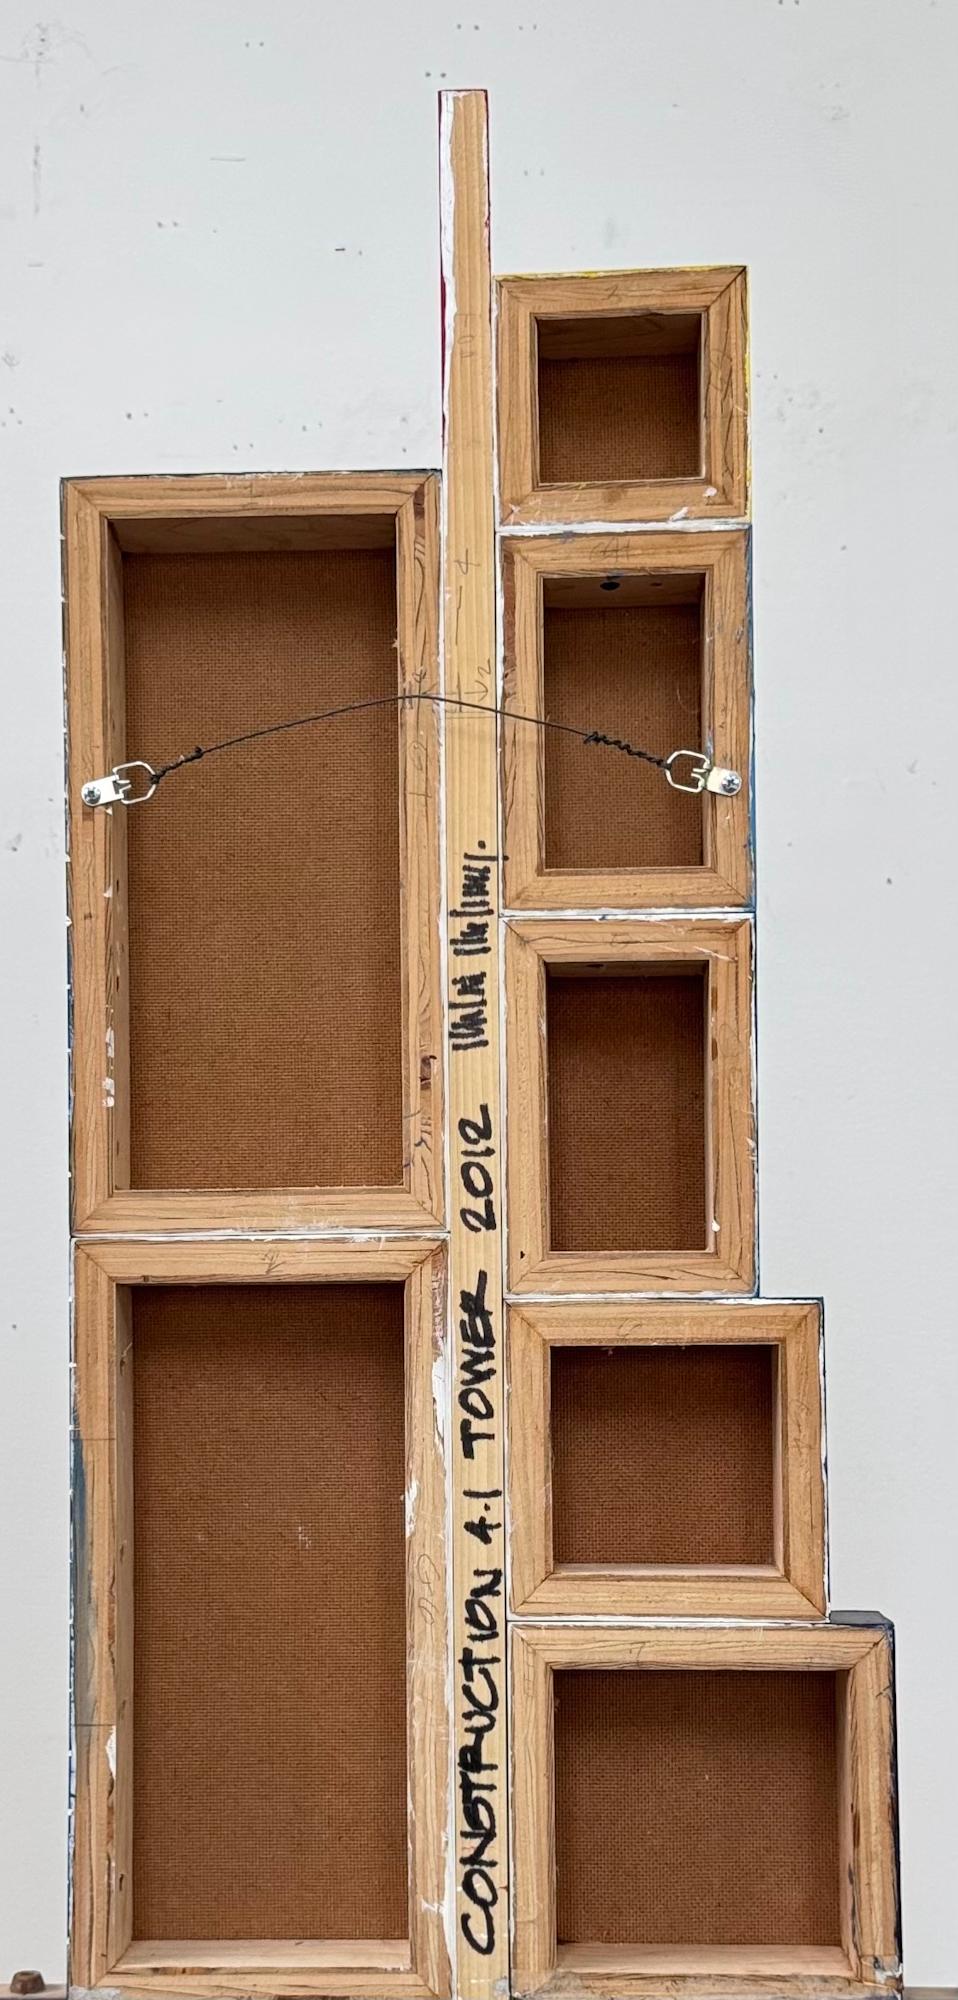 CONSTRUCTION 4.1 TOWER 2012